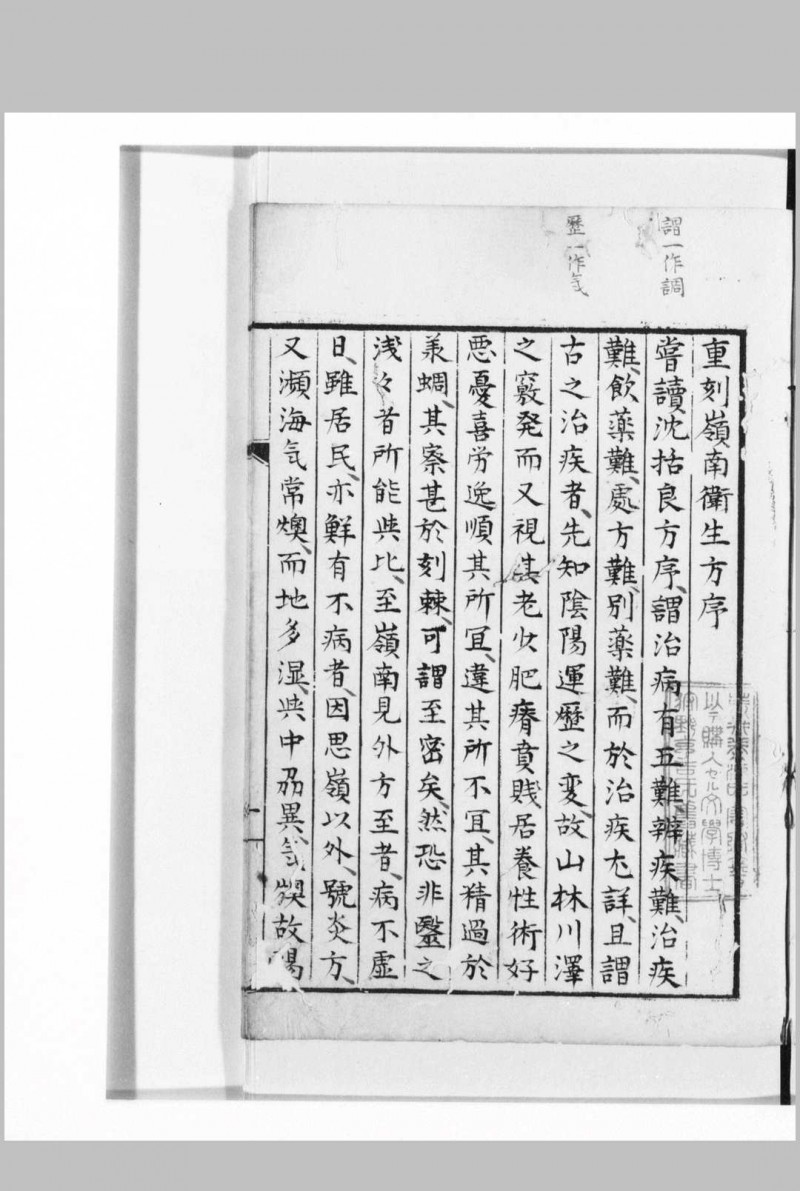 謂一作調
歷一作氣
重刻嶺南衛生方序
嘗讀沈括良方序謂治病有五難辨疾難治疾
難飲薬難處方難別薬難而於治疾尤詳且謂
古之治疾者先知陰陽運歷之変故山林川澤
之竅発而又視其老少肥瘠貴賎居養性術好
悪憂喜労逸順其所冝違其所不冝其精過於
承蜩其察甚於刻棘可謂至密矣然恐非毉之
浅々者所能與比至嶺南見外方至者病不虚
日雖居民亦鮮有不病者因思嶺以外號炎方
又瀕海気常燠而地多湿與中州異気燠故陽
以テ購入セル文學博士